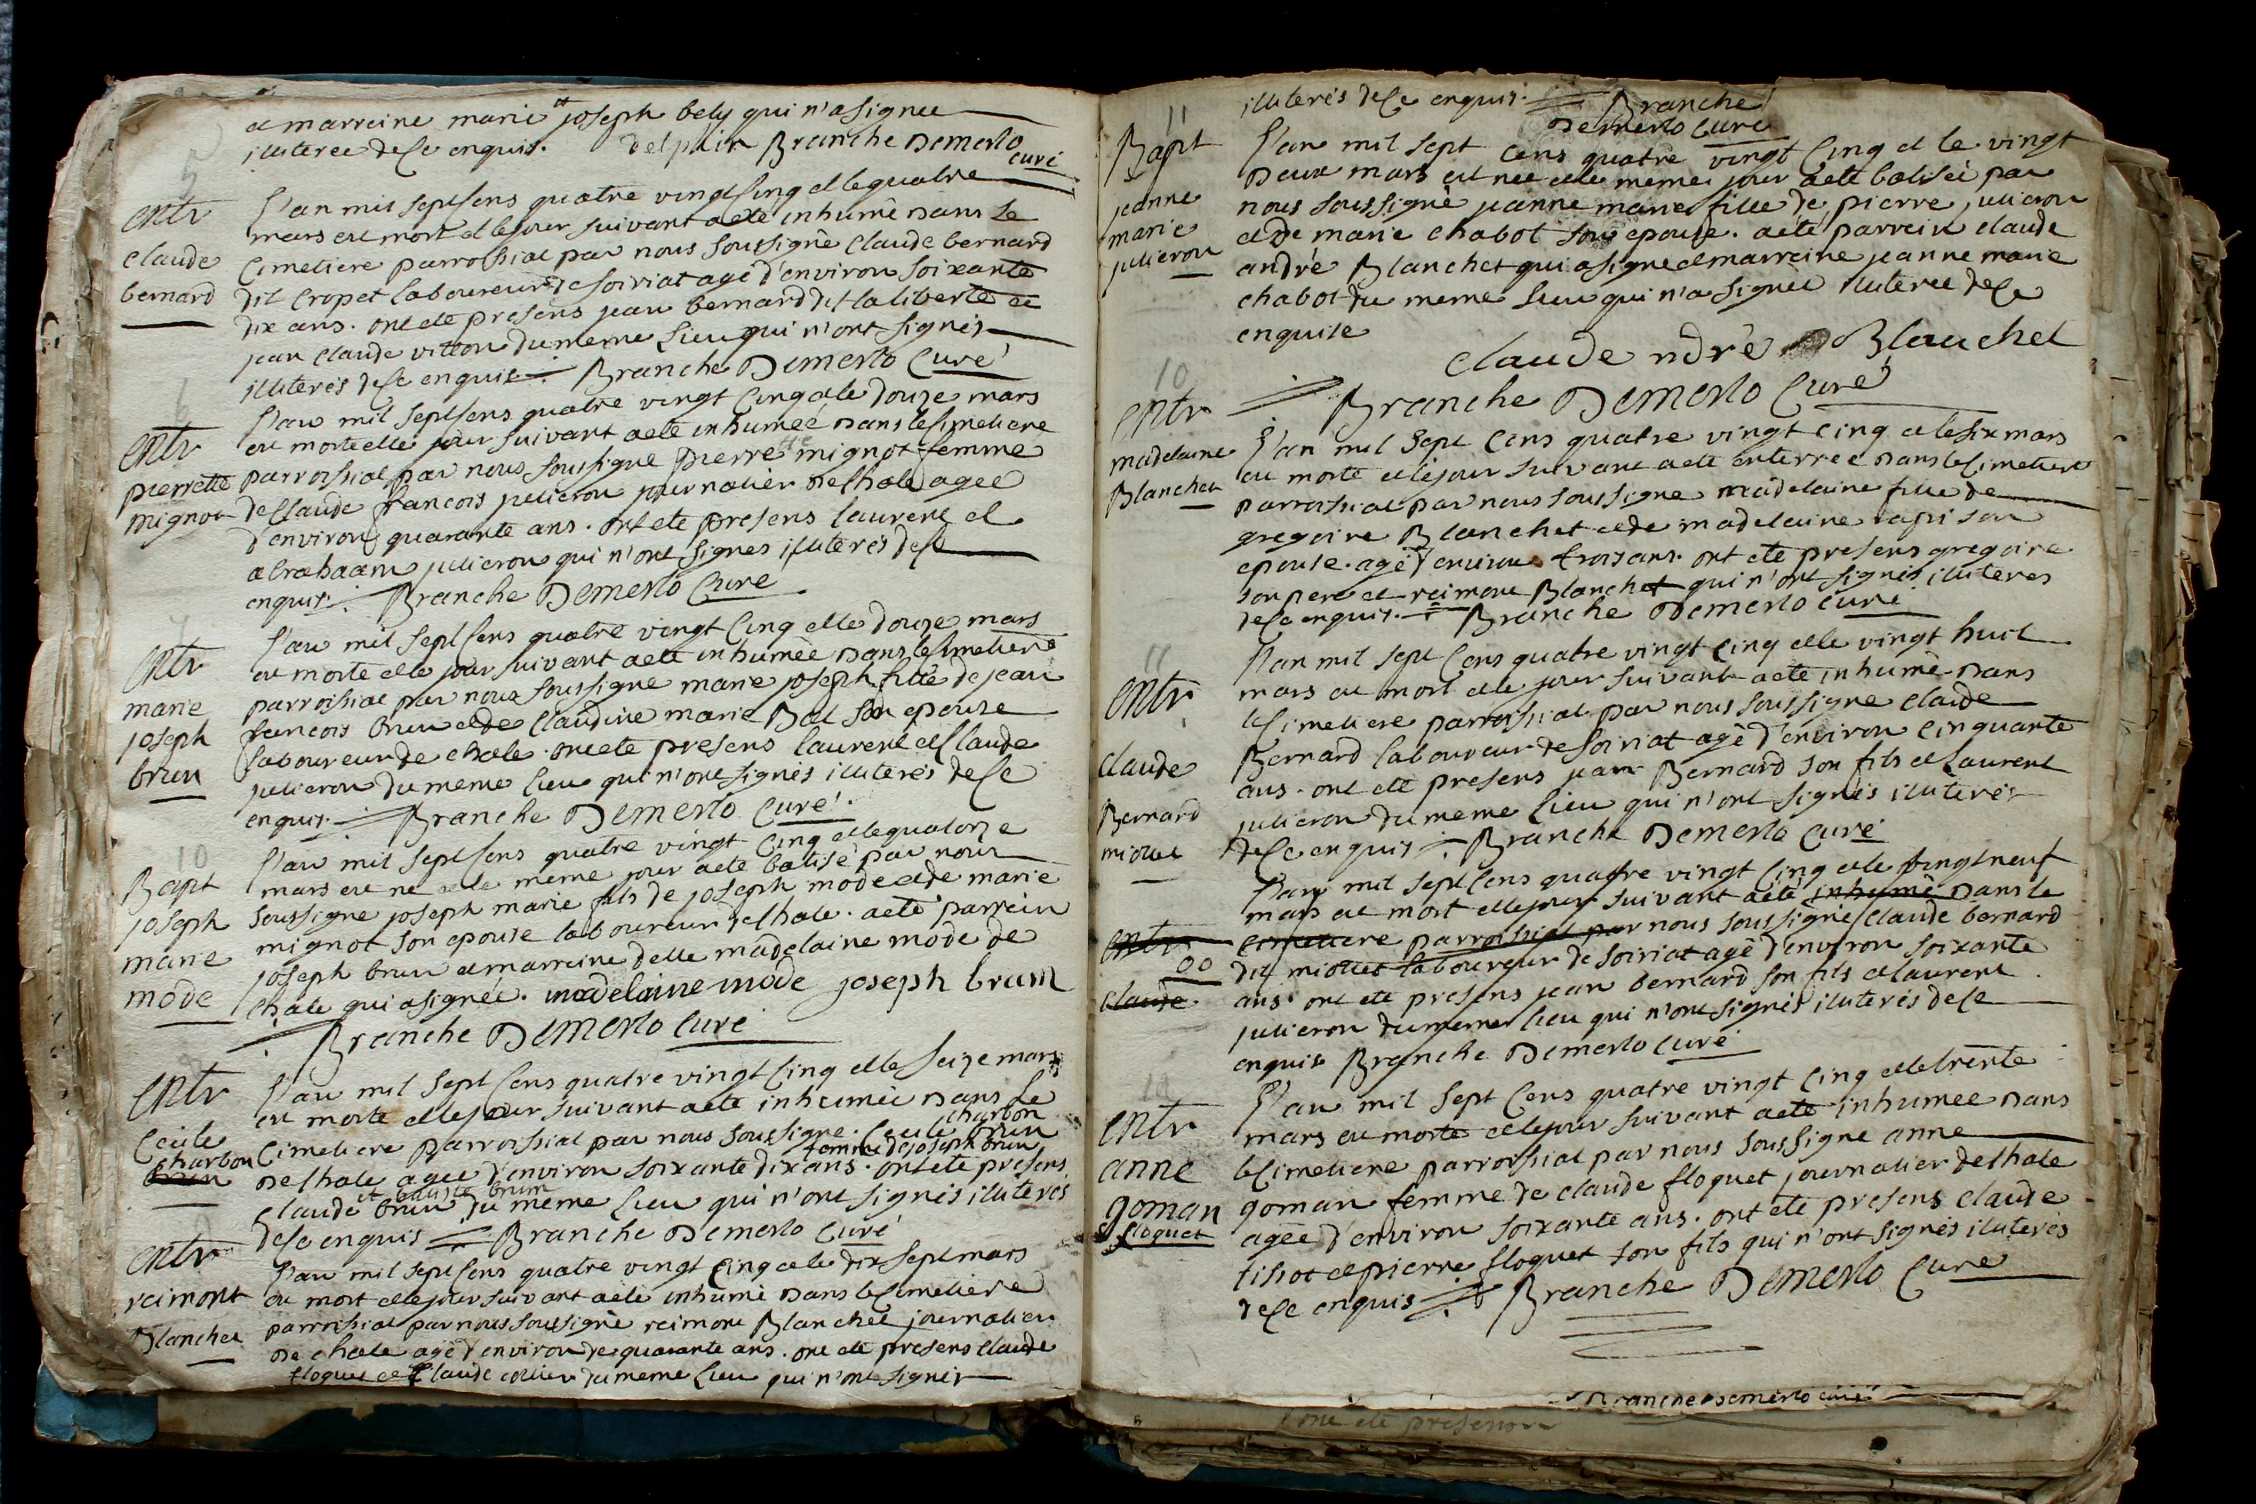 et marreine marie joseph bely qui n'a signee
illiteree de ce enquis. delphin Branche Demerlo
curé
5
entr
claude
bernard
L'an mil sept sens quatre vingt sinq et le quatre
mars est mort et le jour suivant a eté inhumé dans le
cimetiere parroissial par nous soussigné claude bernard
dit cropet laboureur de soiriat agé d'environ soixante
dix ans. ont eté presens jean bernard dit la liberté et
jean claude vitton du meme lieu qui n'ont signés
illiterés de ce enquis Branche Demerlo Curé
6
entr
pierrette
mignot
L'an mil sept sens quatre vingt cinq et le douze mars
est morte et le jour suivant a eté inhumeé dans le simetiere
parroissial par nous soussigne pierrette mignot femme
de claude francois julieron journalier de chale agee
d'environ quarante ans. ont eté presens laurent et
abrahaam julieron qui n'ont signes illiterés de ce
enquis. Branche Demerlo Curé
7
entr
marie
joseph
brun
L'an mil sept sens quatre vingt cinq et le douze mars
est morte et le jour suivant a eté inhumèe dans le simetiere
parroissial par nous soussigne marie joseph fille de jean
francois brun et de claudine marie Bal son epouse
laboureur de chale. ont eté presens laurent et claude
julieron du meme lieu qui n'ont signés illiterés de ce
enquis. Branche Demerlo Curé.
10
Bapt
joseph
marie
mode
L'an mil sept sens quatre vingt cinq et le quatorze
mars est né et le meme jour a eté batisé par nous
soussigne joseph marie fils de joseph mode et de marie
mignot son epouse laboureur de chale. a eté parrein
joseph brun et marreine delle madelaine mode de
chale qui a signée. madelaine mode joseph brun
Branche Demerlo Curé
8
entr
Cecile
charbon
brun
L'an mil sept cens quatre vingt cinq et le seize mars
est morte et le jour suivant a eté inhumée dans le
cimetiere parroissial par nous soussigne. Cecile charbon brun
femme de joseph brun
de chale agee d'environ soixante dix ans. ont eté presens
et batiste brun
claude brun du meme lieu qui n'ont signés illiterés
de ce enquis Branche Demerlo Curé
9
entr
reimont
Blanchet
L'an mil sept sens quatre vingt cinq et le dix sept mars
est mort et le jour suivant a eté inhumé dans le cimetiere
parroissial par nous soussigné reimont Blanchet journalier
de chale agé d'environ de quarante ans. ont eté presens claude
floquet et claude collier du meme lieu qui n'ont signés
illiterés de ce enquis. Branche
Demerlo Curé
11
Bapt
jeanne
marie
julieron
L'an mil sept cens quatre vingt cinq et le vingt
deux mars est née et le meme jour a eté batisée par
nous soussigné jeanne marie fille de pierre julieron
et de marie chabot son epouse. a eté parrein claude
andré Blanchet qui a signe et marreine jeanne marie
chabot du meme lieu qui n'a signée illiteree de ce
enquise
claude ndré Blanchet
Branche Demerlo Curé
10
entr
madelaine
Blanchet
L'an mil sept cens quatre vingt cinq et le six mars
est morte et le jour suivant a eté enterrée dans le cimetiere
parroissial par nous soussigne madelaine fille de
gregoire Blanchet et de madelaine rapi son
epouse. agé d'environ trois ans. ont eté presens gregoire
son pere et reimont Blanchet qui n'ont signés illiteres
de ce enquis. Branche Demerlo Curé
11
entr
claude
Bernard
miollet
L'an mil sept cens quatre vingt cinq et le vingt huit
mars est mort et le jour suivant a eté inhumé dans
le cimetiere parroissial par nous soussigne claude
Bernard laboureur de soiriat agé d'environ cinquante
ans. ont eté presens jean Bernard son fils et laurent
julieron du meme lieu qui n'ont signés illiterés
de ce enquis Branche Demerlo Curé
entr
00
claude
L'an mil sept cens quatre vingt cinq et le vingt neuf
mars est mort et le jour suivant a eté inhumé dans le
cimetiere parroissial par nous soussigné claude bernard
dit miollet laboureur de soiriat agé d'environ soixante
ans. ont eté presens jean bernard son fils et laurent
julieron du meme lieu qui n'ont signés illiterés de ce
enquis Branche Demerlo Curé
entr
anne
goman
floquet
L'an mil sept cens quatre vingt cinq et le trente
mars est morte et le jour suivant a eté inhumee dans
le cimetiere parroissial par nous soussigne anne
goman femme de claude floquet journalier de chale
agée d'environ soixante ans. ont eté presens claude
tissot et pierre floquet son fils qui n'ont signés illiterés
de ce enquis Branche Demerlo Curé
Branche Demerlo curé
ont eté presens